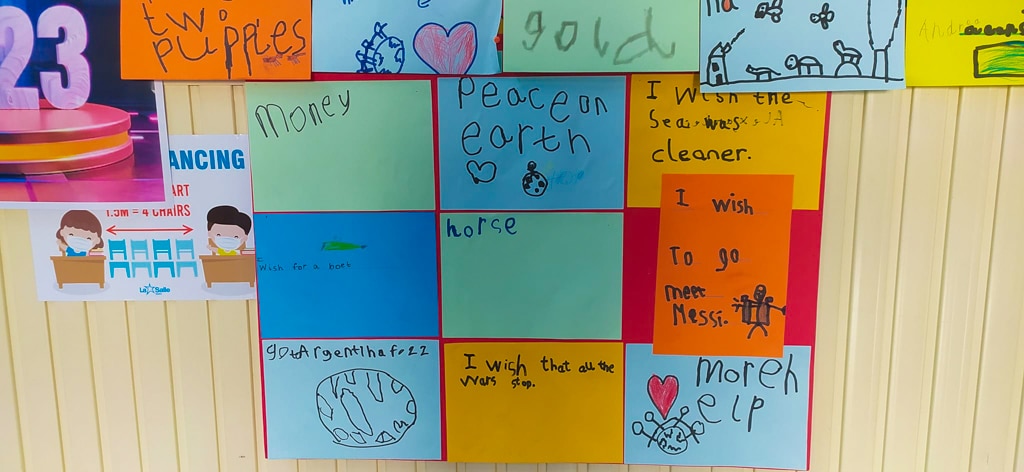 twi
puppies
gold
23
ANCING
ART
1.5M = 4 CHAIRS
La Salle
money
Peace on
earth
I wish the
Sea was
cleaner.
I wish
To go
meet
Messi.
Wish for a boat
horse
I wish that all the
wars stop.
moreh
elp